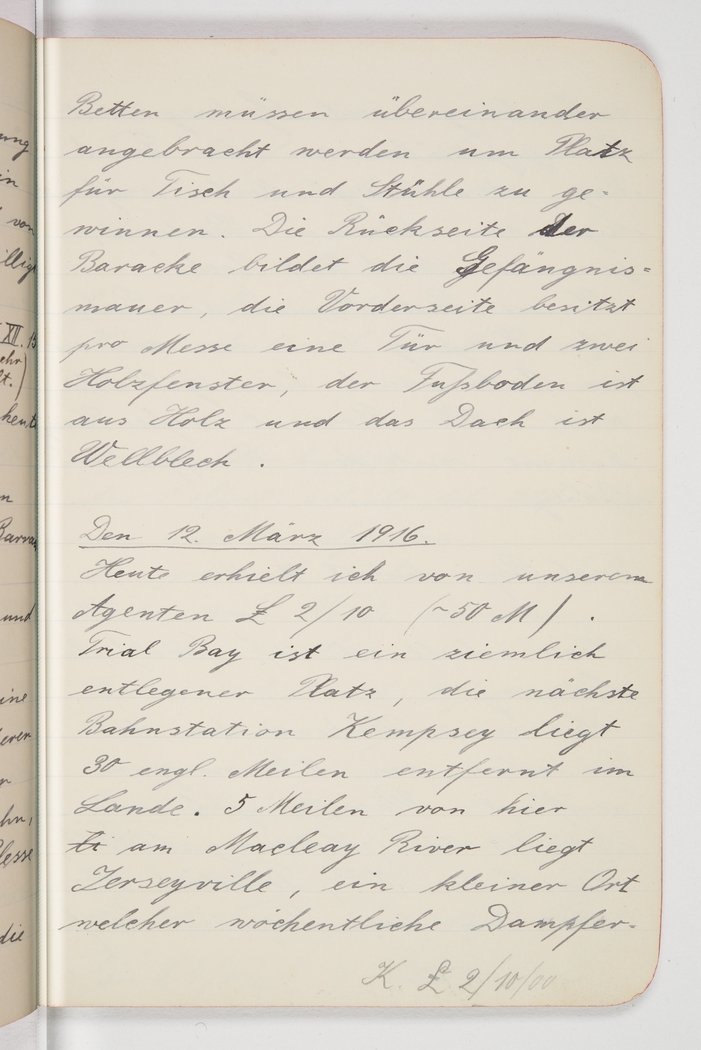 Betten müssen übereinander
angebracht werden um Platz
für Tisch und Stühle zu ge-
winnen. Die Rückseite der
Baracke bildet die Gefängnis-
mauer, die Vorderseite besitzt
pro Messe eine Tür und zwei
Holzfenster, der Fußboden ist
aus Holz und das Dach ist
Wellblech.
Den 12. März 1916.
Heute erhielt ich von unserem
Agenten £ 2/10 (~50 M).
Trial Bay ist ein ziemlich
entlegener Platz, die nächste
Bahnstation Kempsey liegt
30 engl. Meilen entfernt im
Lande. 5 Meilen von hier
am Macleay River liegt
Jerseyville, ein kleiner Ort
welcher wöchentliche Dampfer-
K. £ 2/10/00